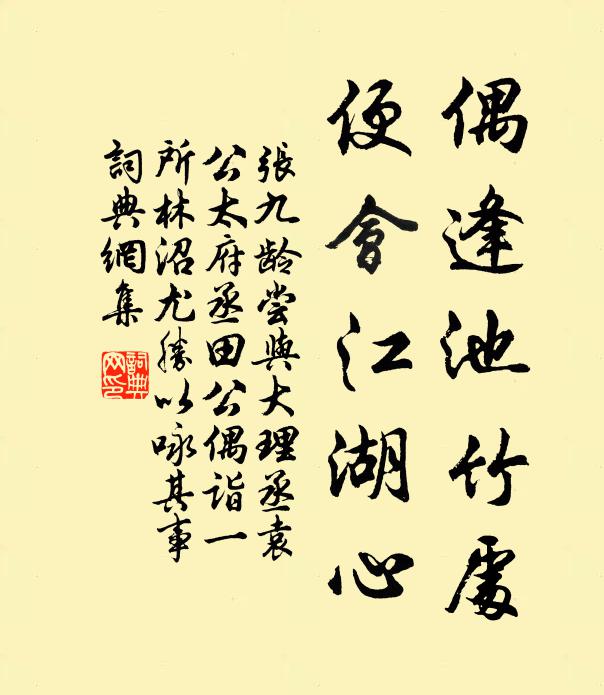 偶逢池竹處
便會江湖心
張九龄尝與大理丞袁
公太府丞田公偶詣一
所林沼尤勝以咏其事
詞典網集
詞典
网印